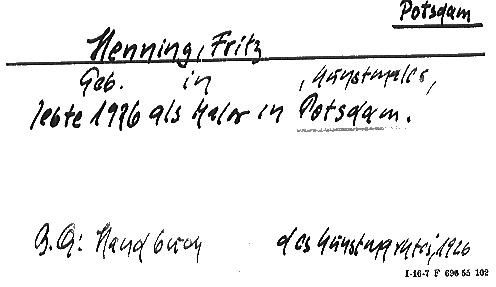 Potsdam
Henning, Fritz
Geb. in , Kunstmaler,
lebte 1926 als Maler in Potsdam.
B.Q.: Handbuch des Kunstmarktes, 1926
I-16-7 F 696 55 102